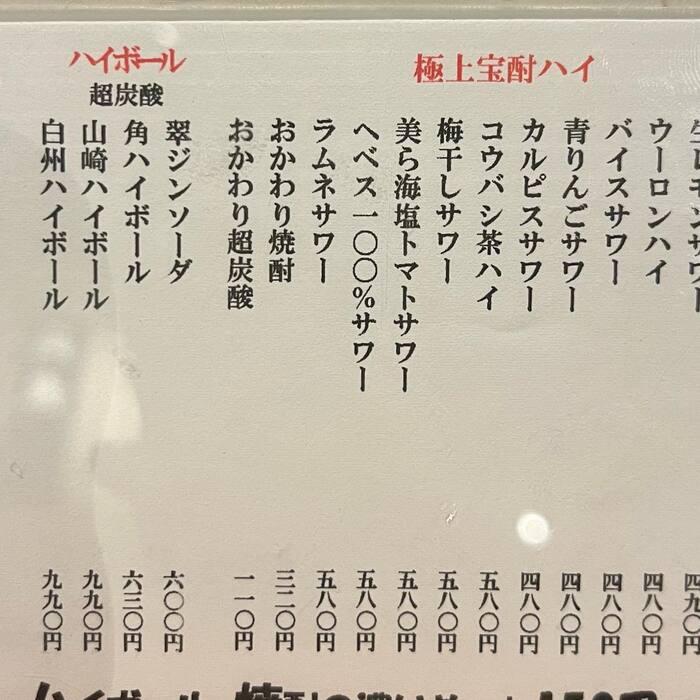 極上宝酎ハイ
生レモンサワー 四九〇円
ウーロンハイ 四八〇円
バイスサワー 四八〇円
青りんごサワー 四八〇円
カルピスサワー 四八〇円
コウバシ茶ハイ 五八〇円
梅干しサワー 五八〇円
美ら海塩トマトサワー 五八〇円
ヘベス一〇〇%サワー 五八〇円
ラムネサワー 五八〇円
おかわり焼酎 三二〇円
おかわり超炭酸 一一〇円
ハイボール
超炭酸
翠ジンソーダ 六〇〇円
角ハイボール 六三〇円
山崎ハイボール 九九〇円
白州ハイボール 九九〇円